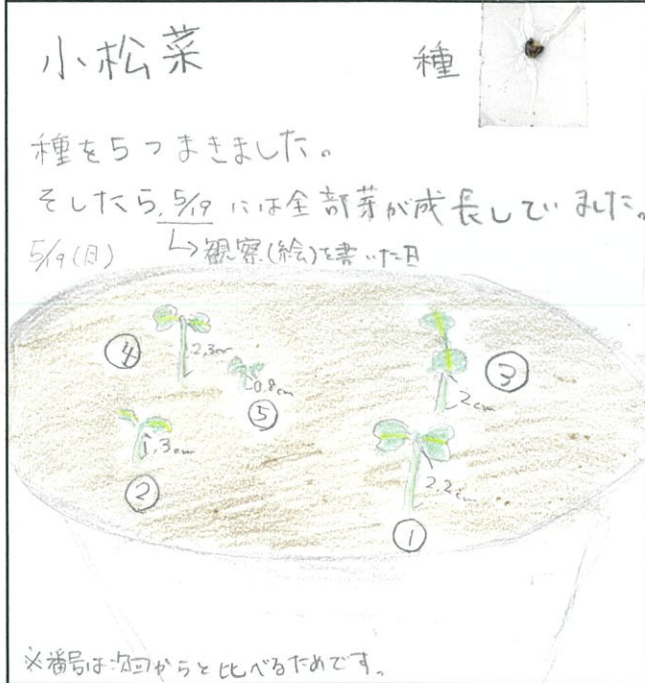 小松菜 種
種を5つまきました。
そしたら、5/19には全部芽が成長していました。
5/19(日) ↳観察(絵)を書いた日
④ 2.3cm
⑤ 0.8cm
③ 2cm
② 1.3cm
① 2.2cm
※番号は次回からと比べるためです。